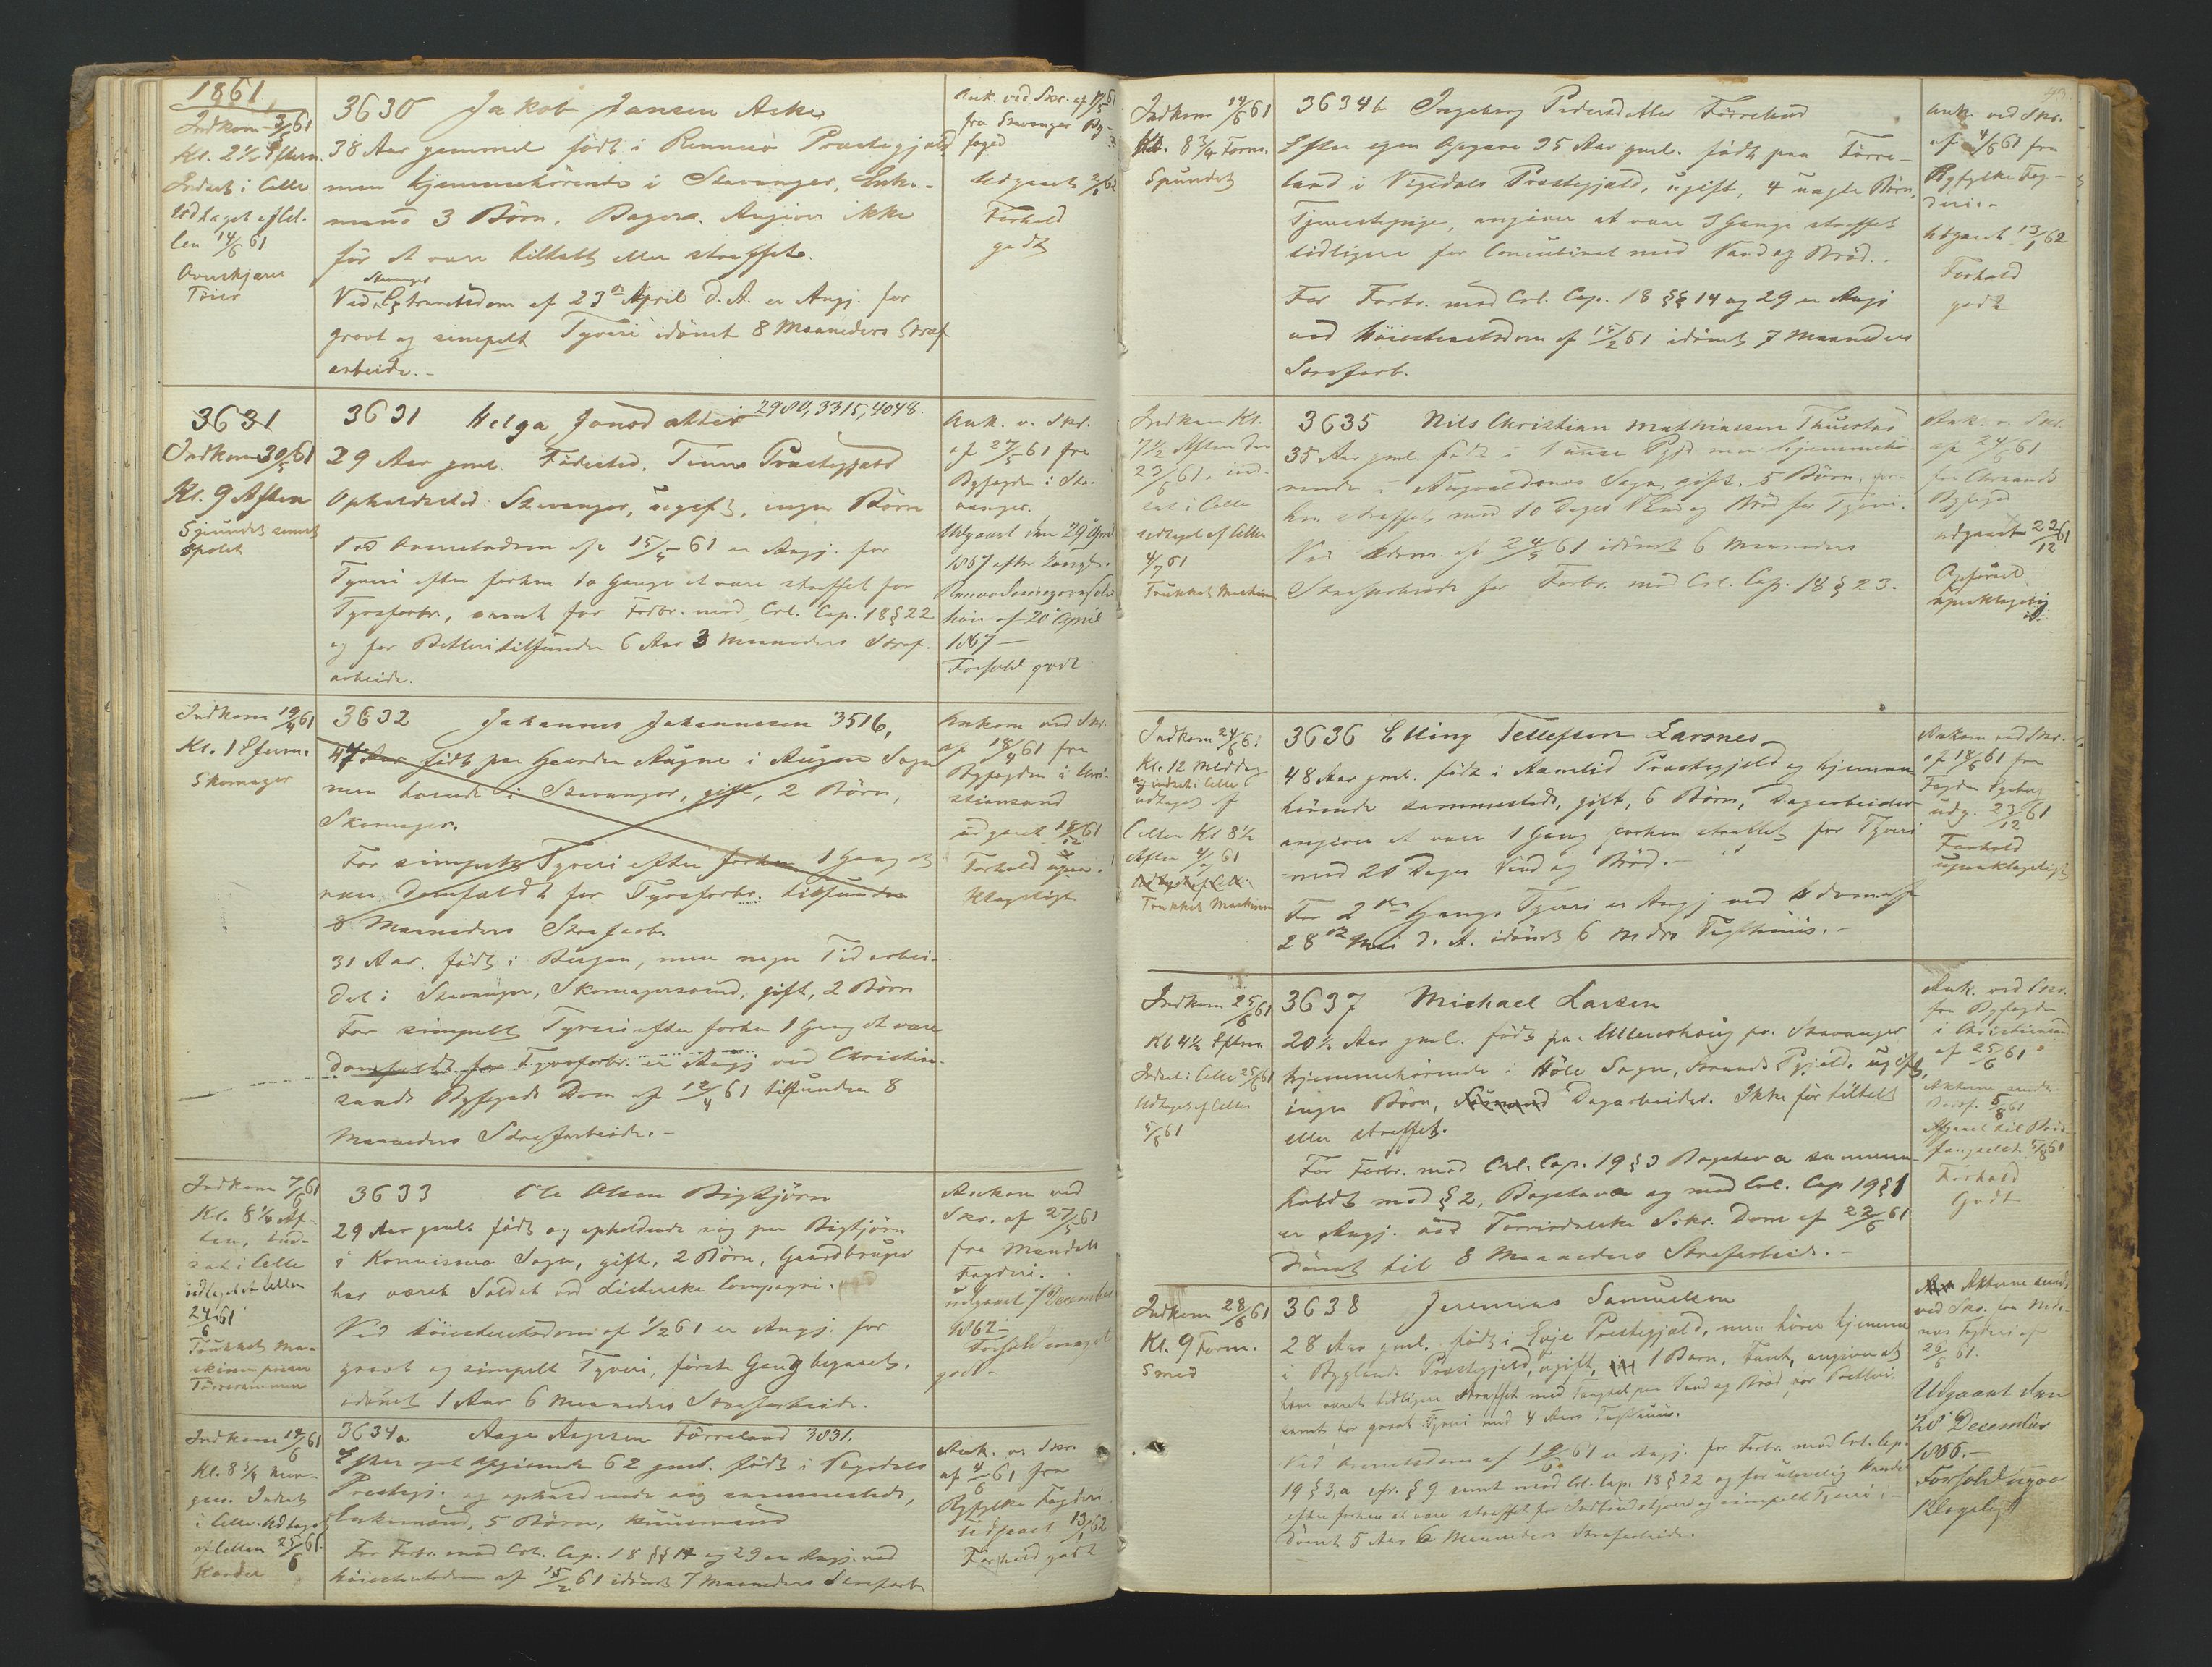 1861
Indkom 3/5 61
Kl. 2 1/2 Efterm.
Indsat i Celle
Udtaget af Cel-
len 14/6 61
Overskjærer
Töier
3630 Jakob Jansen Aske
38 Aar gammel födt i Rennesö Præstegjeld
men hjemmehörende i Stavanger, Enke-
mand 3 Börn, Bager. Angiver ikke
för at være tiltalt eller straffet.
Stavanger
Ved Extraretsdom af 23de April d. A. er Angj. for
grovt og simpelt Tyveri idömt 8 Maaneders Straf
arbeide.-
Ank. ved Skr. af 1/5 61
fra Stavanger By-
foged
Udgaaet 2/1 62
Forhold
godt
3631
Indkom 30/5 61
Kl. 9 Aften
Spundet samt
spolet
3631 Helga Jonsdatter 2980, 3315, 4048.
29 Aar gml. Födested. Tinns Præstegjeld
Opholdssted: Stavanger, ugift, ingen Börn
Ved Overretsdom af 15/4 61 er Angj. for
Tyveri efter forhen 10 Gange at være straffet for
Tyvsforbr., samt for Forbr. mod Crl. Cap. 18 § 22
og for Betleri tilfunden 6 Aar 3 Maaneders Straf-
arbeide.
Ank. v. Skr.
af 27/5 61 fra
Byfogden i Sta-
vanger.
Udgaaet den 29 April
1867 efter Kongel.
Resolution
af 20 April
1867 -
Forhold godt
Indkom 19/4 61
Kl. 1 Efterm.
Skomager
3632 Johannes Johannesen 3516,
47 Aar födt paa Gaarden Augne i Augne Sogn
men boende i Stavanger, gift, 2 Börn,
Skomager.
For simpelt Tyveri efter forhen 1 Gang at
være domfældt for Tyvsforbr. tilfunden
8 Maaneders Strafarb.
31 Aar. födt i Bergen, men nogen Tid arbei-
det i Stavanger, Skomagersvend, gift, 2 Börn
For simpelt Tyveri efter forhen 1 Gang at være
domfældt for Tyvsforbr. er Angj ved Christian-
sands Byfogeds Dom af 12/4 61 tilfunden 8
Maaneders Strafarbeide.-
Ankom ved Skr.
af 18/4 61 fra
Byfogden i Chri-
stiansand
udgaaet 18/12 61
Forhold upaa-
klageligt
Indkom 7/6 61
Kl. 8 1/4 Af-
ten, ind-
sat i Celle
udtaget af Cellen
24/6 61
Trukket Ma-
skinen paa
Törrerammen
3633 Ole Olsen Bigkjörn
29 Aar gml. födt og opholdende sig paa Bigkjörn
i Konnismo Sogn, gift, 2 Börn, Gaardbruger
har været Soldat ved Listerske Compagni.
Ved Höiesteretsdom af 1/2 61 er Angj. for
grovt og simpelt Tyveri, förste Gang begaaet,
idömt 1 Aar 6 Maaneders Strafarbeide.
Ankom ved
Skr. af 27/5 61
fra Mandals
Fogderi.
udgaaet 7 December
1862 -
Forhold meget
godt -
Indkom 14/6 61
Kl. 8 3/4 Mor-
gen. Indsat
i Celle. Udtaget
af Cellen 25/6 61.
Karder
3634a Aage Aagesen Förreland 3831.
Efter eget Opgivende 62 gml. födt i Vigedals
Præstegj. og opholdende sig sammesteds,
Enkemand, 5 Börn, Huusmand
For Forbr. mod Crl. Cap. 18 §§ 14 og 29 er Angj. ved
Höiesteretsdom af 15/2 61 idömt 7 Maaneders Strafarb.
Ank. v. Skr.
af 4/6 61 fra
Ryfylke Fogderi
Udgaaet 13/1 62
Forhold godt
Indkom 14/6 61
Kl. 8 3/4 Form.
Spundet
3634b Ingeborg Pedersdatter Förreland
Efter egen Opgave 35 Aar gml. födt paa Förre-
land i Vigedals Præstegjeld, ugift, 4 uægte Börn,
Tjenestepige, angiver at være 3 Gange straffet
tidligere for Concubinat med Vand og Bröd.
For Forbr. mod Crl. Cap. 18 §§ 14 og 29 er Angj
ved Höiesteretsdom af 15/2 61 idömt 7 Maaneders
Strafarb.
Ank. ved Skr.
af 4/6 61 fra
Ryfylke Fog-
deri -
Udgaaet 13/1 62
Forhold
godt
Indkom Kl.
7 1/2 Aften den
23/6 61, ind-
sat i Celle
udtaget af Cellen
4/7 61
Trukket Maskinen
3635 Nils Christian Mathiassen Thuestad
35 Aar gml. födt i Pgjd. men hjemmehö-
rende i Sogn, gift. 5 Börn, for-
hen straffet med 10 Dages Vand og Bröd for Tyveri.
Ved Hdom. af 24/5 61 idömt 6 Maaneders
Strafarbeide for Forbr. mod Crl. Cap. 18 § 23.
Ank. v. Skr.
af 24/6 61
fra Chrsands
Byfoged
udgaaet 22/12 61
Opförsel
upaaklagelig
Indkom 24/6 61
Kl. 12 Middag
og indsat i Celle
udtaget af
Cellen Kl 8 1/2
Aften 4/7 61
Trukket Maskinen
3636 Elling Tellefsen Larsnes
48 Aar gml. födt i Aamlid Præstegjeld og hjemme-
hörende sammesteds, gift, 6 Börn, Dagarbeider
angiver at være 1 Gang forhen straffet for Tyveri
med 20 Dages Vand og Bröd.-
For 2den Gangs Tyveri er Angj ved Hdom af
28de Mai d. A. idömt 6 Mdrs Tugthuus.-
Ankom ved Skr.
af 18/6 61 fra
Fogden
udg. 23/12 61
Forhold
upaaklageligt
Indkom 25/6 61
Kl 4 1/2 Efterm
Indsat i Celle 25/6 61
Udtaget af Cellen
5/8 61
3637 Michael Larsen
20 1/2 Aar gml. födt paa Ullenhaug pr. Stavanger
hjemmehörende i Höle Sogn, Strands Pgjeld. ugift,
ingen Börn, Sömand Dagarbeider. Ikke för tiltalt
eller straffet.
For Forbr. mod Crl. Cap. 19 § 3 Bogstav a sammen-
holdt med § 2, Bogstav a og med Crl. Cap 19 § 1
er Angj. ved Torrisdalske Sokr. Dom af 22/6 61
dömt til 8 Maaneders Strafarbeide.-
Ank. ved Skr.
fra Byfogden
i Christiansand
af 25/6 61
Afgaaet til Bods-
fængselet 5/8 61
Forhold
Godt
Indkom 28/6 61
Kl. 9 Form.
Smed
3638 Jeremias Samuelsen
28 Aar gml. födt i Evje Præstegjeld, men hörer hjemme
i Byglands Præstegjeld, ugift, 1 Barn, Fant, angiver at
have været tidligere straffet med Fængsel paa Vand og Bröd for Betleri
samt for grovt Tyveri med 4 Aars Tugthuus.
Ved Overretsdom af 10/6 61 er Angj. for Forbr. mod Crl. Cap.
19 § 3, a cfr. § 9 samt mod Crl. Cap. 18 § 22 og for ulovlig Handel
efter forhen at være straffet for Indbrudstyveri og simpelt Tyveri i-
dömt 5 Aar 6 Maaneders Strafarbeide.
Akterne sendt
ved Skr. fra Nede-
næs Fogderi af
26/6 61.
Udgaaet den
28 December
1866.-
Forhold upaa-
klageligt